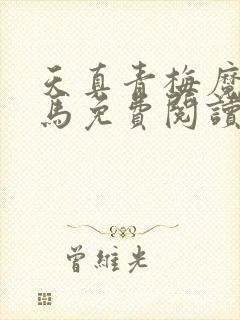 天真青梅魔
馬免費閱讀
曾維光